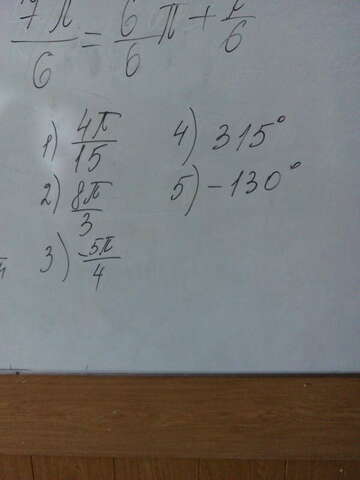 7π/6 = 6/6 π + π/6
1) 4π/15
2) 8π/3
3) -5π/4
4) 315°
5) -130°